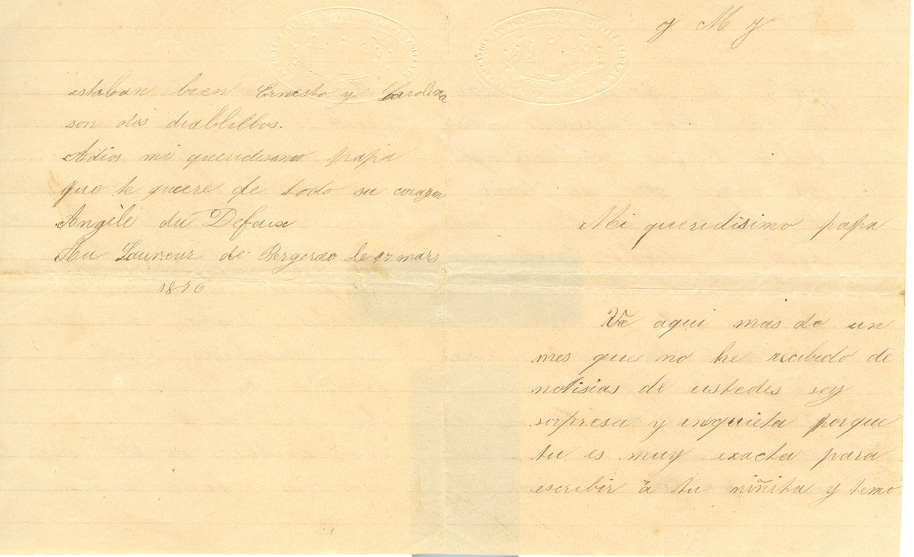 estaban bien Ernesto y Carolina
son dos diablillos.
Adios mi queridisimo papa
que te quiere de todo su corazon
Angèle du Defaix
le 17 mars
1876
J M J
Mi queridisimo papa
Va aqui mas de un
mes que no he recibido de
notisias de ustedes soy
sorpresa y inquieta porque
tu es muy exacta para
escribir à tu niñita y temo